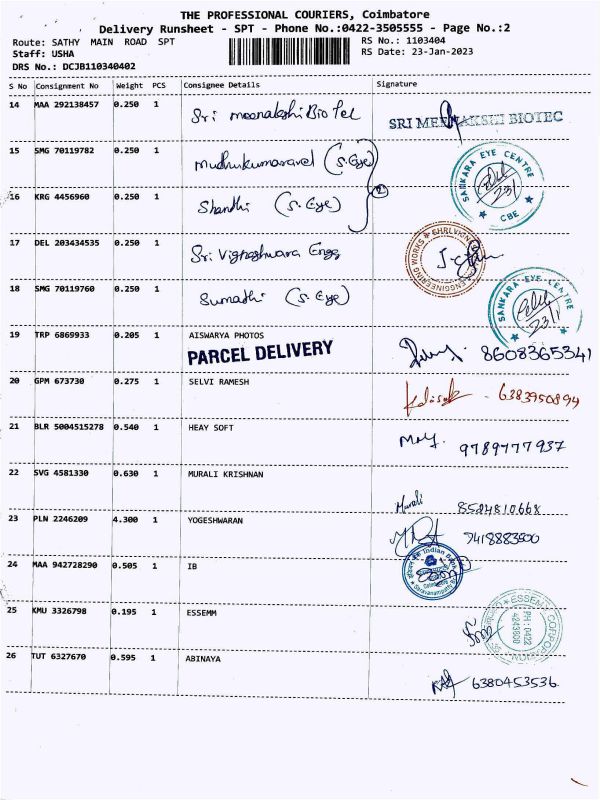 THE PROFESSIONAL COURIERS, Coimbatore
Delivery Runsheet - SPT - Phone No.:0422-3505555 - Page No.:2
Route: SATHY MAIN ROAD SPT RS No.: 1103404
Staff: USHA RS Date: 23-Jan-2023
DRS No.: DCJB110340402
S No Consignment No Weight PCS Consignee Details Signature
14 MAA 292138457 0.250 1 Sri meenakshi Bio Tel SRI MEENAKSHI BIOTEC
15 SMG 70119782 0.250 1 Muthukumaravel (S. Eye) SANKARA EYE CENTRE CBE 23/1
16 KRG 4456960 0.250 1 Shanthi (S. Eye) 2
17 DEL 203434535 0.250 1 Sri Vigneshwara Engg ENGINEERING WORKS
18 SMG 70119760 0.250 1 Sumathi (S. Eye) SANKARA EYE CENTRE 23/1
19 TRP 6869933 0.205 1 AISWARYA PHOTOS
PARCEL DELIVERY 8608365341
20 GPM 673730 0.275 1 SELVI RAMESH - 6383950894
21 BLR 5004515278 0.540 1 HEAY SOFT 9789777937
22 SVG 4581330 0.630 1 MURALI KRISHNAN Murali 8584810668
23 PLN 2246209 4.300 1 YOGESHWARAN 9418883900
24 MAA 942728290 0.505 1 IB Indian Bank
25 KMU 3326798 0.195 1 ESSEMM ESSEMM CORPORATION PH : 0422
26 TUT 6327670 0.595 1 ABINAYA 6380453536